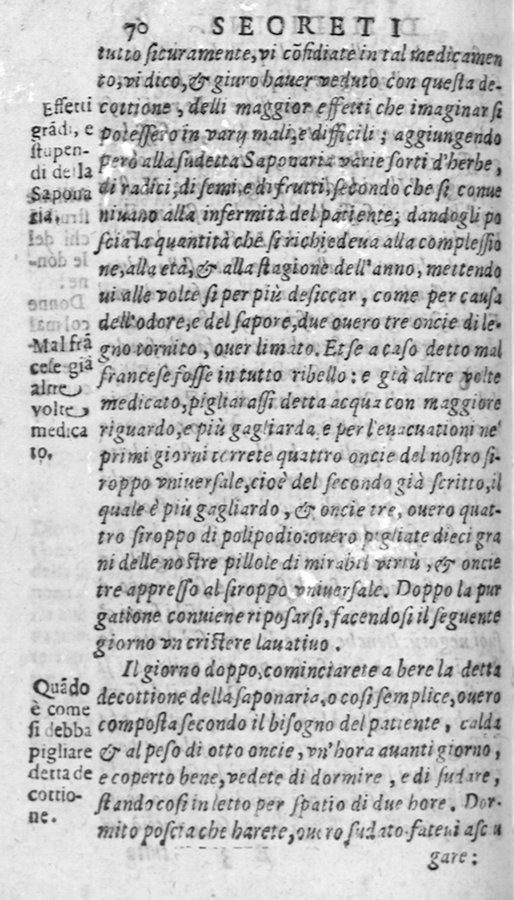 70 SECRETI
tutto sicuramente, vi cõfidiate in tal medicamen
to, vi dico, & giuro hauer veduto con questa de-
cottione, delli maggior effetti che imaginar si
potessero in varij mali, e difficili; aggiungendo
però alla sudetta Saponaria varie sorti d'herbe,
di radici, di semi, e di frutti, secondo che si conue
niuano alla infermità del patiente; dandogli po
scia la quantità che si richiedeua alla complessio
ne, alla età, & alla stagione dell'anno, mettendo
ui alle volte si per più desiccar, come per causa
dell'odore, e del sapore, due ouero tre oncie di le-
gno tornito, ouer limato. Et se a caso detto mal
francese fosse in tutto ribello: e già altre volte
medicato, pigliarassi detta acqua con maggiore
riguardo, e più gagliarda, e per l'euacuationi ne'
primi giorni torrete quattro oncie del nostro si-
roppo vniuersale, cioè del secondo già scritto, il
quale è più gagliardo, & oncie tre, ouero quat-
tro siroppo di polipodio: ouero pigliate dieci gra
ni delle nostre pillole di mirabil virtù, & oncie
tre appresso al siroppo vniuersale. Doppo la pur
gatione conuiene riposarsi, facendosi il seguente
giorno vn cristere lauatiuo.
Il giorno doppo, cominciarete a bere la detta
decottione della saponaria, o così semplice, ouero
composta secondo il bisogno del patiente, calda
& al peso di otto oncie, vn'hora auanti giorno,
e coperto bene, vedete di dormire, e di sudare,
stando così in letto per spatio di due hore. Dor-
mito poscia che harete, ouero sudato fateui asciu
gare:
Effetti
grãdi, e
stupen-
di della
Sapona
ria.
Mal frã
cese già
altre
volte
medica
to.
Quãdo
è come
si debba
pigliare
detta de
cottio-
ne.